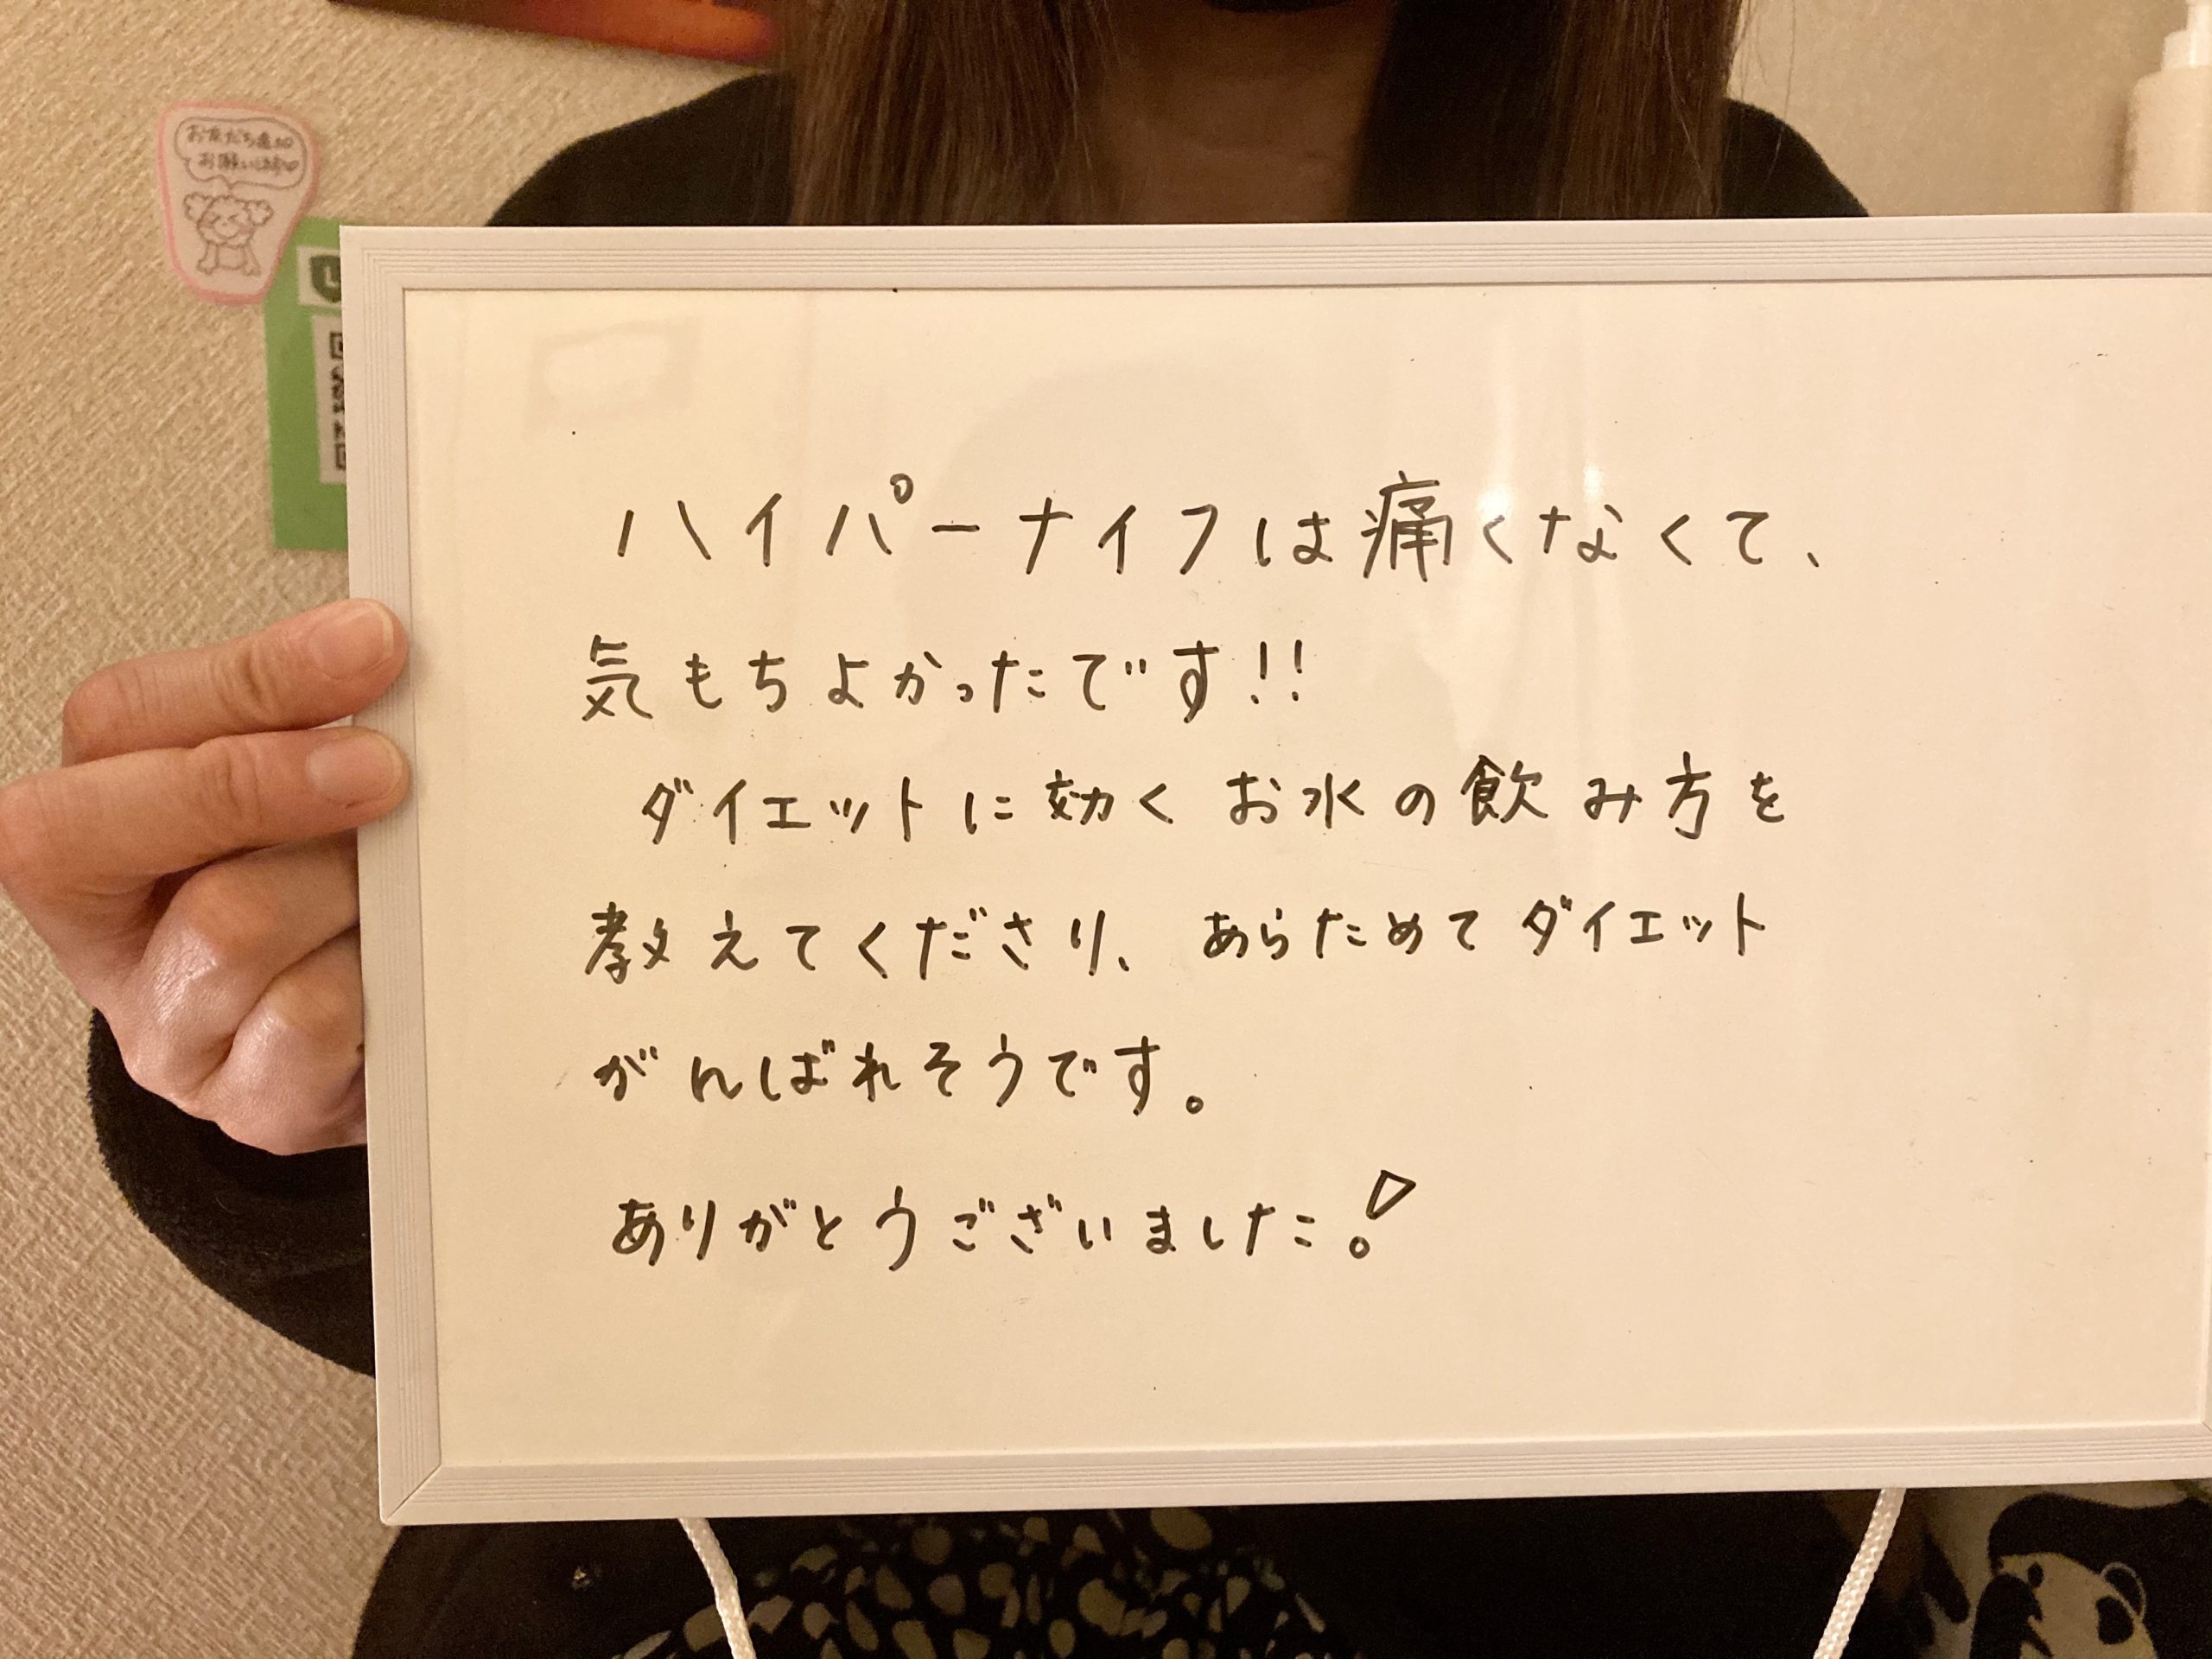 お友だち追加
お願いします♡
L
ハイパーナイフは痛くなくて、
気もちよかったです!!
ダイエットに効くお水の飲み方を
教えてくださり、あらためてダイエット
がんばれそうです。
ありがとうございました!